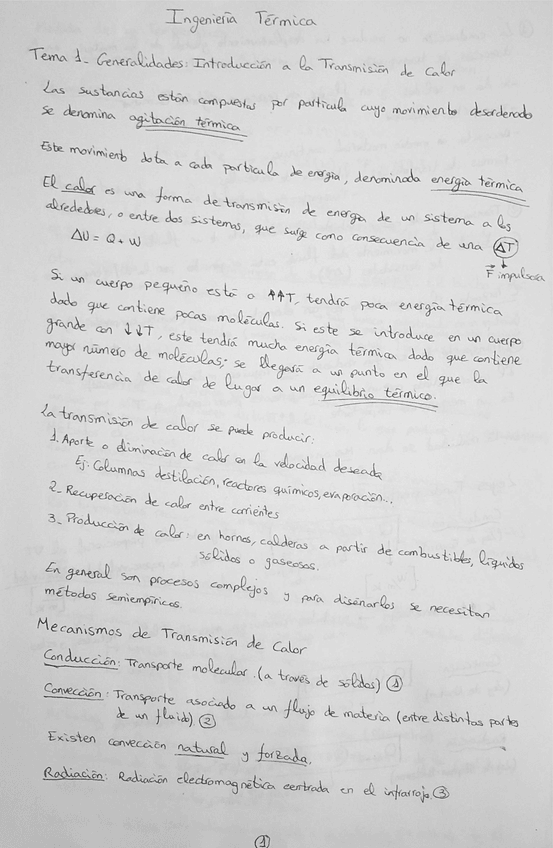 Ingeniería Térmica
Tema 1_ Generalidades: Introducción a la Transmisión de Calor
Las sustancias están compuestas por partícula cuyo movimiento desordenado
se denomina agitación térmica
Este movimiento dota a cada partícula de energía, denominada energía térmica
El calor es una forma de transmisión de energía de un sistema a los
alrededores, o entre dos sistemas, que surge como consecuencia de una ΔT
ΔU = Q + W
F impulsora
Si un cuerpo pequeño está a ↑↑T, tendrá poca energía térmica
dado que contiene pocas moléculas. Si este se introduce en un cuerpo
grande con ↓↓T, este tendrá mucha energía térmica dado que contiene
mayor número de moléculas, se llegará a un punto en el que la
transferencia de calor de lugar a un equilibrio térmico.
La transmisión de calor se puede producir:
1. Aporte o eliminación de calor en la velocidad deseada
Ej: Columnas destilación, reactores químicos, evaporación...
2_ Recuperación de calor entre corrientes
3_ Producción de calor: en hornos, calderas a partir de combustibles, líquidos
sólidos o gaseosos.
En general son procesos complejos y para diseñarlos se necesitan
métodos semiempíricos.
Mecanismos de Transmisión de Calor
Conducción: Transporte molecular. (a través de sólidos) ①
Convección: Transporte asociado a un flujo de materia (entre distintas partes
de un fluido) ②
Existen convección natural y forzada.
Radiación: Radiación electromagnética centrada en el infrarrojo. ③
①